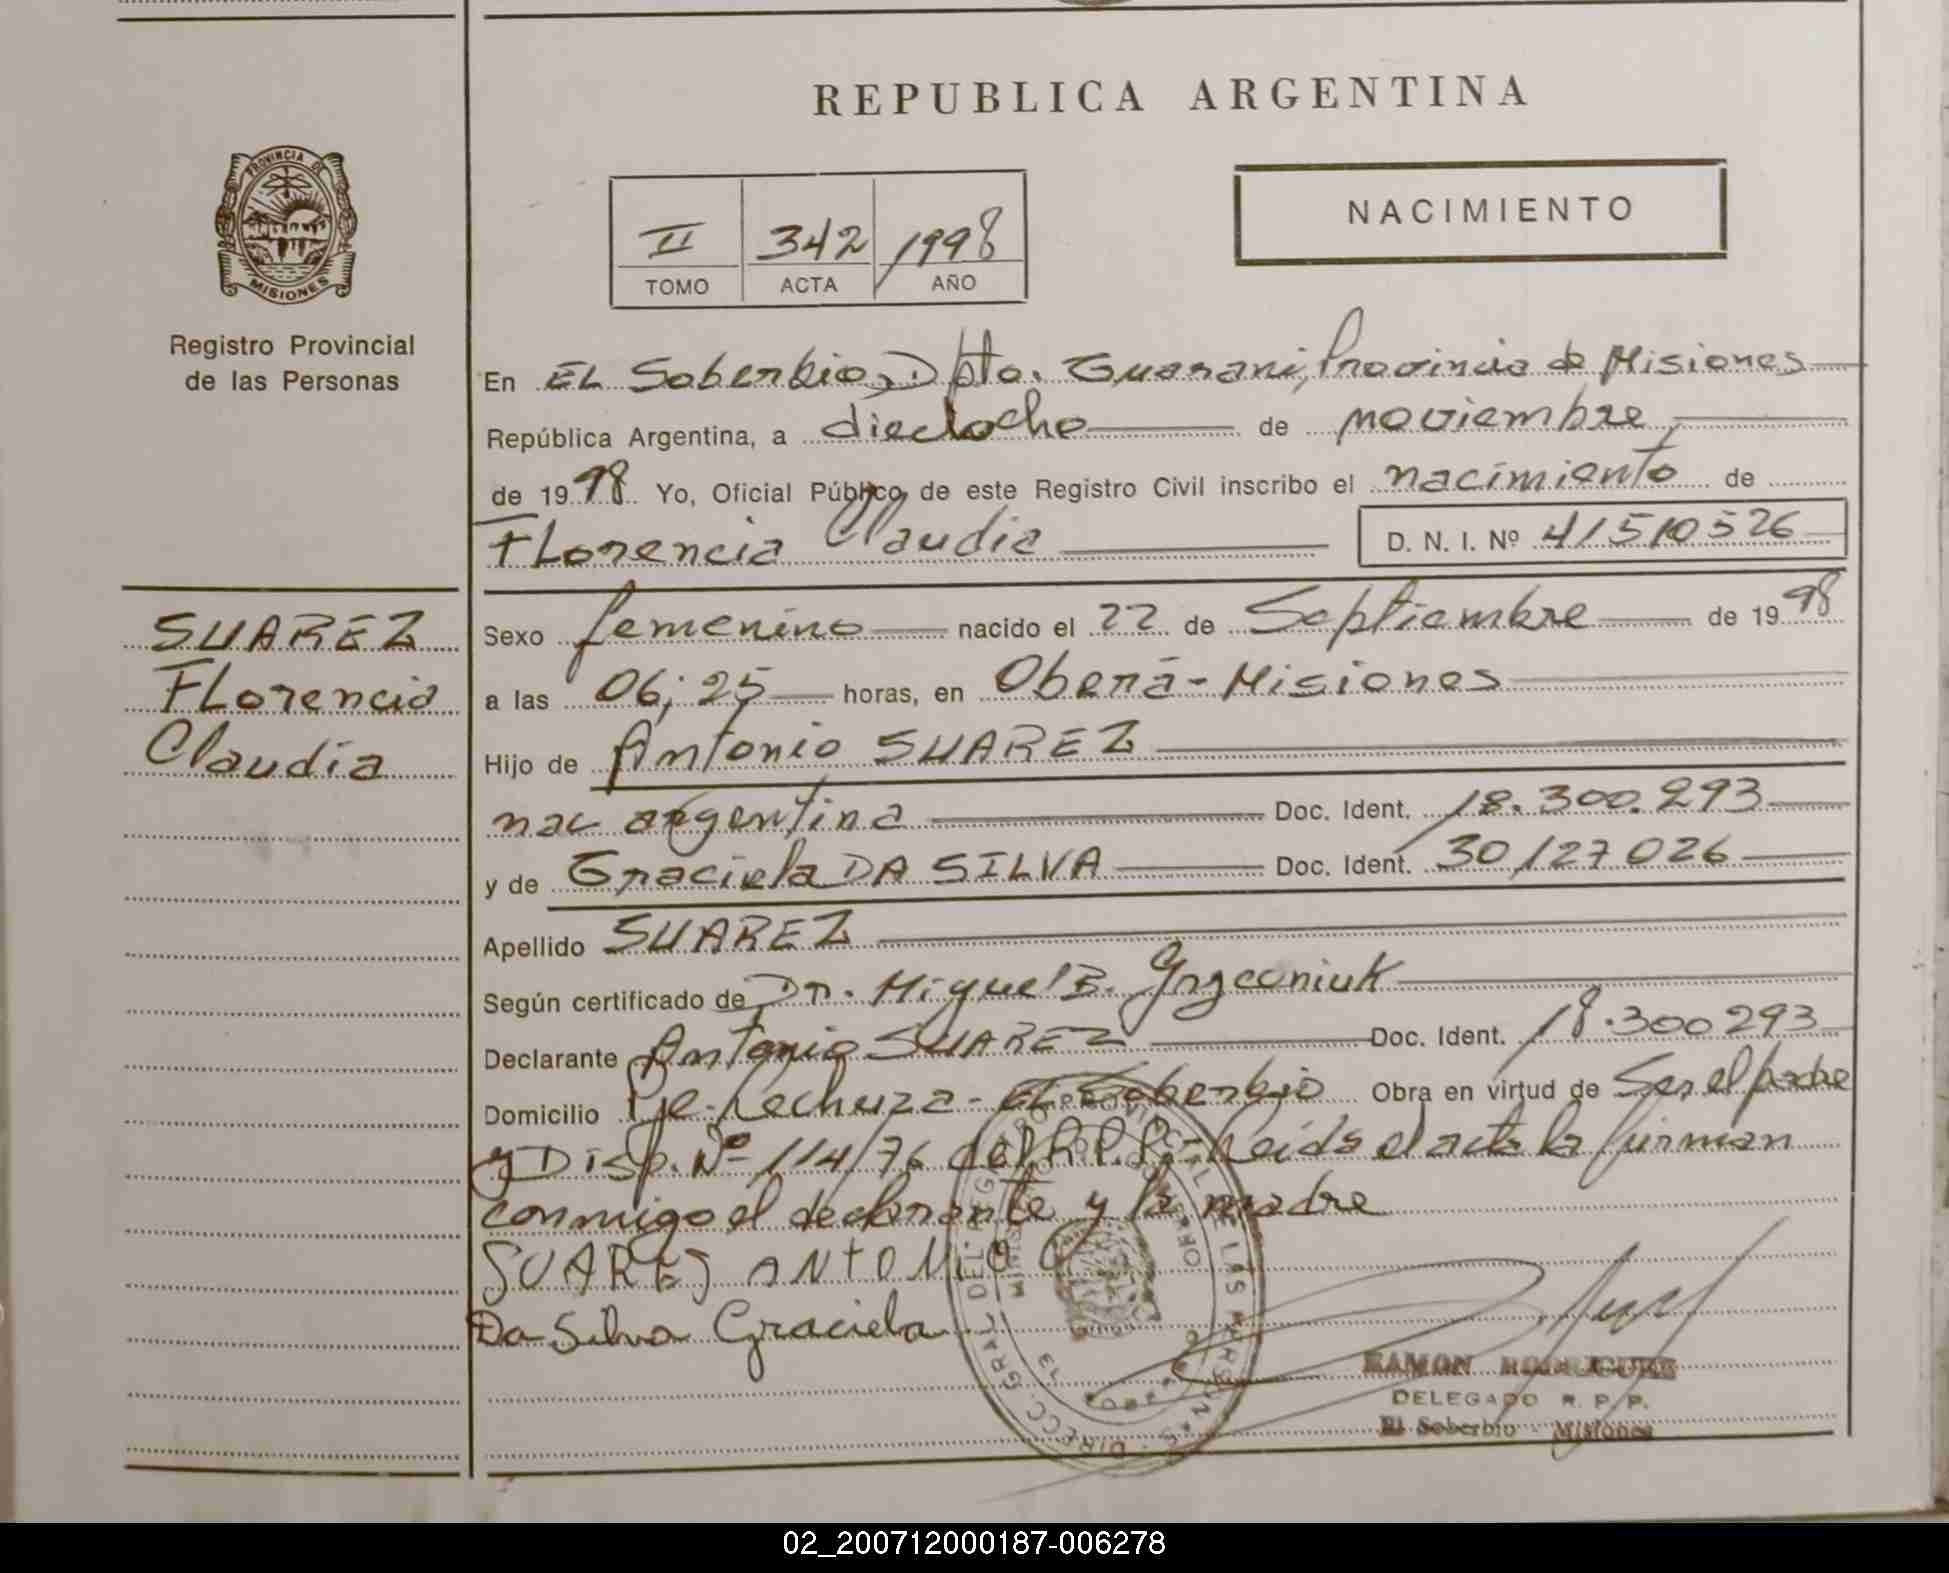 REPUBLICA ARGENTINA
PROVINCIA DE
MISIONES
Registro Provincial
de las Personas
II 342 1998
TOMO ACTA AÑO
NACIMIENTO
En EL Soberbio, Dpto. Guarani, Provincia de Misiones
República Argentina, a dieciocho de noviembre,
de 1998 Yo, Oficial Público de este Registro Civil inscribo el nacimiento de
Florencia Claudia D. N. I. Nº 41510526
SUAREZ
Florencia
Claudia
Sexo femenino nacido el 22 de Septiembre de 1998
a las 06;25 horas, en Oberá - Misiones
Hijo de Antonio SUAREZ
nac argentina Doc. Ident. 18.300.293
y de Graciela DA SILVA Doc. Ident. 30127026
Apellido SUAREZ
Según certificado de Dr. Miguel B.
Declarante Antonio SUAREZ Doc. Ident. 18.300293
Domicilio Pje. Lechuza - El Soberbio Obra en virtud de Ser el padre
y Disp. Nº 114/76 del R.P.P. - Leida el acta la firman
conmigo el declarante y la madre
SUAREZ ANTONIO
Da Silva Graciela
RAMON RODRIGUEZ
DELEGADO R. P. P.
El Soberbio - Misiones
02_200712000187-006278